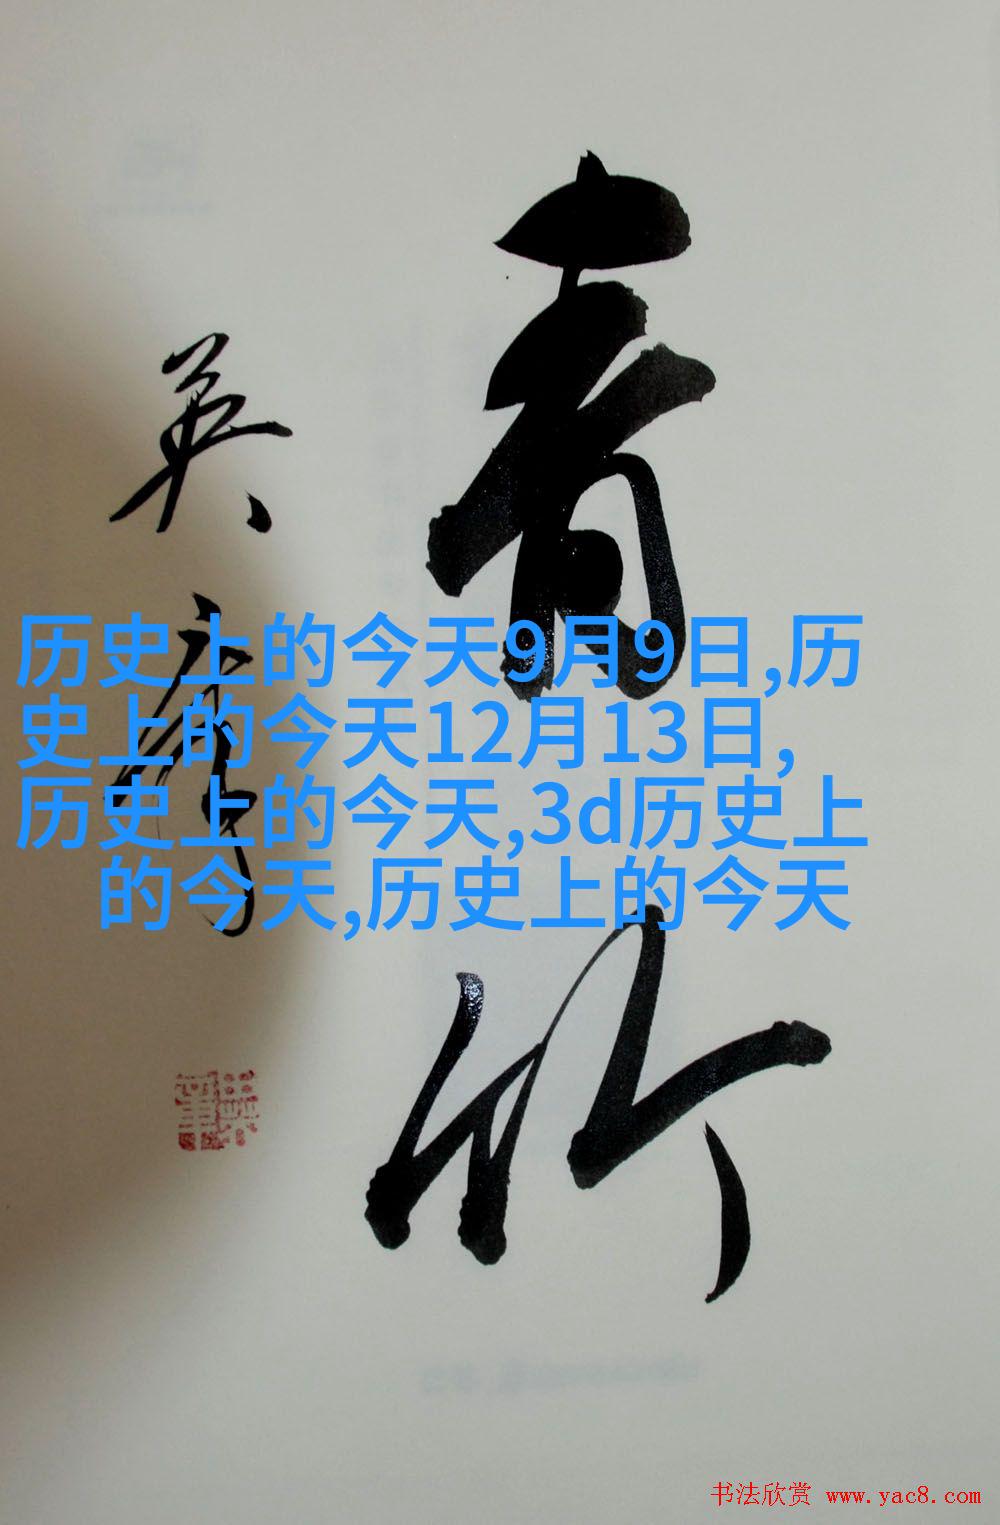 青竹
英彦
历史上的今天9月9日,历
史上的今天12月13日,
历史上的今天,3d历史上
的今天,历史上的今天
书法欣赏 www.yac8.com